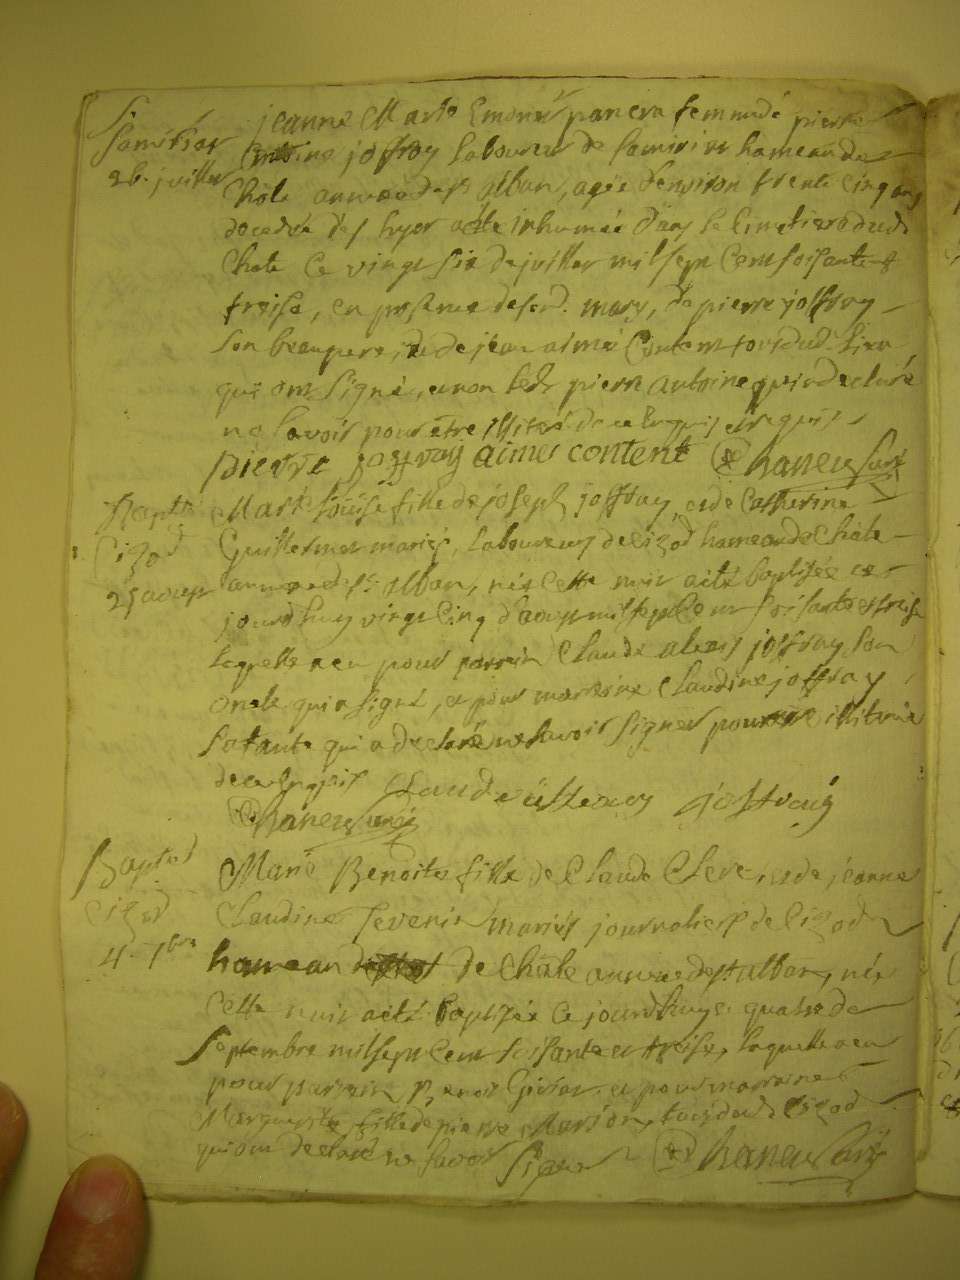 jeanne Marie panera femme de pierre
Antoine joffray laboureur de hameau de
26. juillet
Chole annexe de st alban, agée denviron trente cinq ans
decedée des hyer a été inhumée dans le Cimetiere dud.
Chole Ce vingt six de juillet mil sept Cent soisante et
treise, en presence de sond. mary, de pierre joffray
son beaupere, et de jean aimé Content tous dud. Lieu
qui ont signé, et non led. pierre antoine qui a declaré
ne savoir pour être illiteré de ce enquis et requis
pierre joffray aimes content Chaneu Curé
Bapte
Marie Louise fille de joseph joffray, et de Catherine
Cizod
Guillermet mariés, laboureurs de Cizod hameau de Chole
25 aoust
annexe de st. alban, née cette nuit a été baptisée ce
jourdhuy vingt Cinq d'aoust mil sept Cent soisante et treise
laquelle a eu pour parrein Claude alexis joffray son
oncle qui a signé, et pour marreine Claudine joffray
sa tante qui a declaré ne savoir signer pour être illiterée
de ce enquise Claude joffray
Chaneu Curé
Bapte
Marie Benoite fille de Claude Clere, et de jeanne
Cizod
Claudine Tevenin mariés journaliers de Cizod
4. 7bre
hameau de Chole annexe de st. alban, née
cette nuit a été baptisée Ce jourdhuy quatre de
Septembre mil sept Cent soisante et treise, laquelle a eu
pour parrein Benoit et pour marreine
Marguerite fille de pierre Marion, tous dud. Cizod
qui ont declaré ne savoir Signer Chaneu Curé